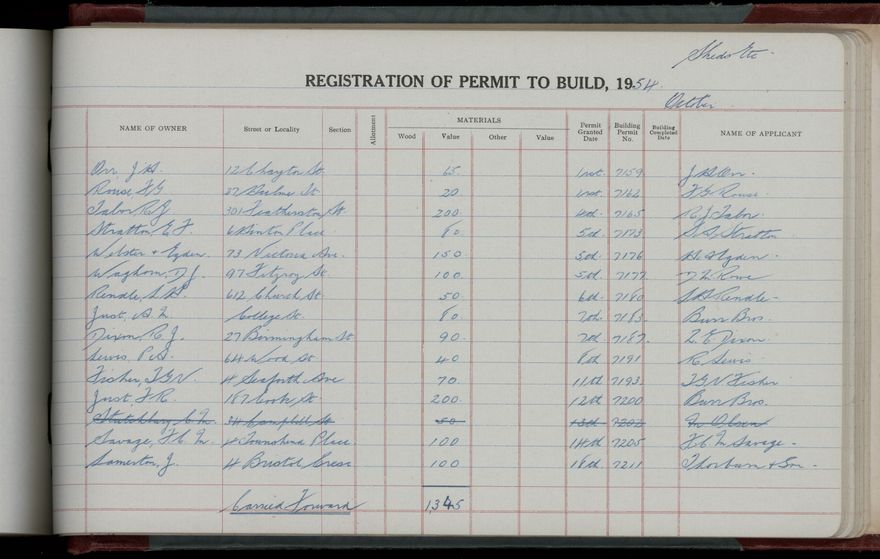 Sheds Etc
REGISTRATION OF PERMIT TO BUILD, 1954.
October
NAME OF OWNER Street or Locality Section Allotment MATERIALS Wood Value Other Value Permit Granted Date Building Permit No. Building Completed Date NAME OF APPLICANT
Orr, J.A. 12 Chayton St. 65 1st. 7159 J A Orr.
Rouse, F.G. 27 St. 20 1st. 7162 F G Rouse.
Tabor, R.J. 301 Featherston St. 200 4th. 7165 R. J. Tabor.
Stratton, E.F. 6 Linton Place 80 5th. 7173 Stratton
Webster & Ogden. 73 Victoria Ave. 150 5th. 7176 Ogden.
Waghorn, D.J. 97 Fitzroy St. 100 5th. 7177 Rowe
Rendle, S.A. 612 Church St. 50 6th. 7180 S A Rendle
Just, College St. 80 7th. 7183. Burr Bros.
Dixon, R.J. 27 Birmingham St 90 7th. 7187. Dixon
Lewis, P.A. 64 Wood St 40 8th 7191 R. Lewis
Fisher, T.G.V. 4 Seaforth Ave 70 11th 7193. T.G.V Fisher
Just, F.R. 187 Cook St. 200. 12th 7200 Burr Bros.
Stutchbury, C.M. 34 Campbell St 50 13th 7202 Olsen
Savage, F.C.M. 4 Townshend Place. 100 14th 7205 F.C.M Savage
Somerton, J. 4 Bristol Cresc 100 18th. 7211 Thorburn & Son
Carried Forward 1,345